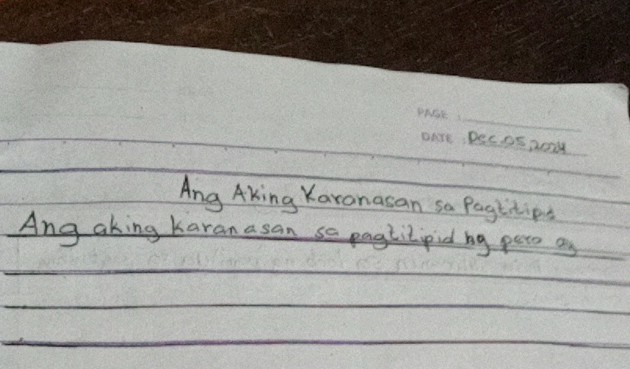 PAGE :
DATE : Dec. 05, 2024
Ang Aking Karanasan sa Pagtitipid
Ang aking karanasan sa pagtitipid ng pera ay